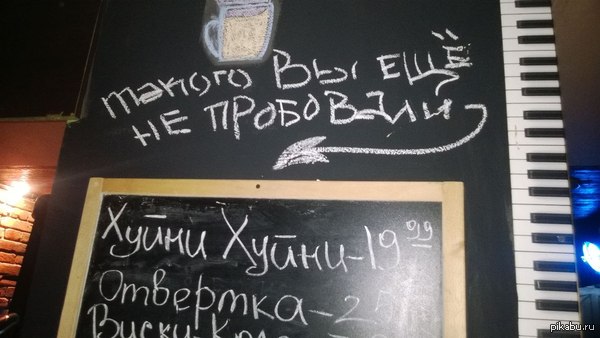 такого Вы ЕЩЁ
НЕ ПРОБОВАЛИ
Хуйни Хуйни-19 99
Отвертка-2
Виски-Кола
pikabu.ru